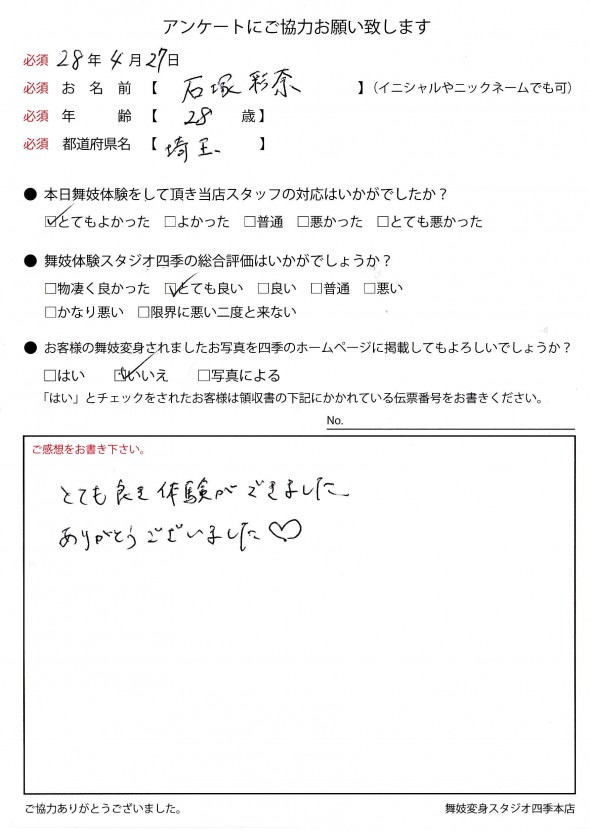 アンケートにご協力お願い致します
必須 28年4月27日
必須 お名前【 石塚彩奈 】(イニシャルやニックネームでも可)
必須 年齢【 28 歳】
必須 都道府県名【 埼玉 】
● 本日舞妓体験をして頂き当店スタッフの対応はいかがでしたか?
☑とてもよかった □よかった □普通 □悪かった □とても悪かった
● 舞妓体験スタジオ四季の総合評価はいかがでしょうか?
□物凄く良かった ☑とても良い □良い □普通 □悪い
□かなり悪い □限界に悪い二度と来ない
● お客様の舞妓変身されましたお写真を四季のホームページに掲載してもよろしいでしょうか?
□はい ☑いいえ □写真による
「はい」とチェックをされたお客様は領収書の下記にかかれている伝票番号をお書きください。
No.
ご感想をお書き下さい。
とても良き体験ができました
ありがとうございました♡
ご協力ありがとうございました。 舞妓変身スタジオ四季本店